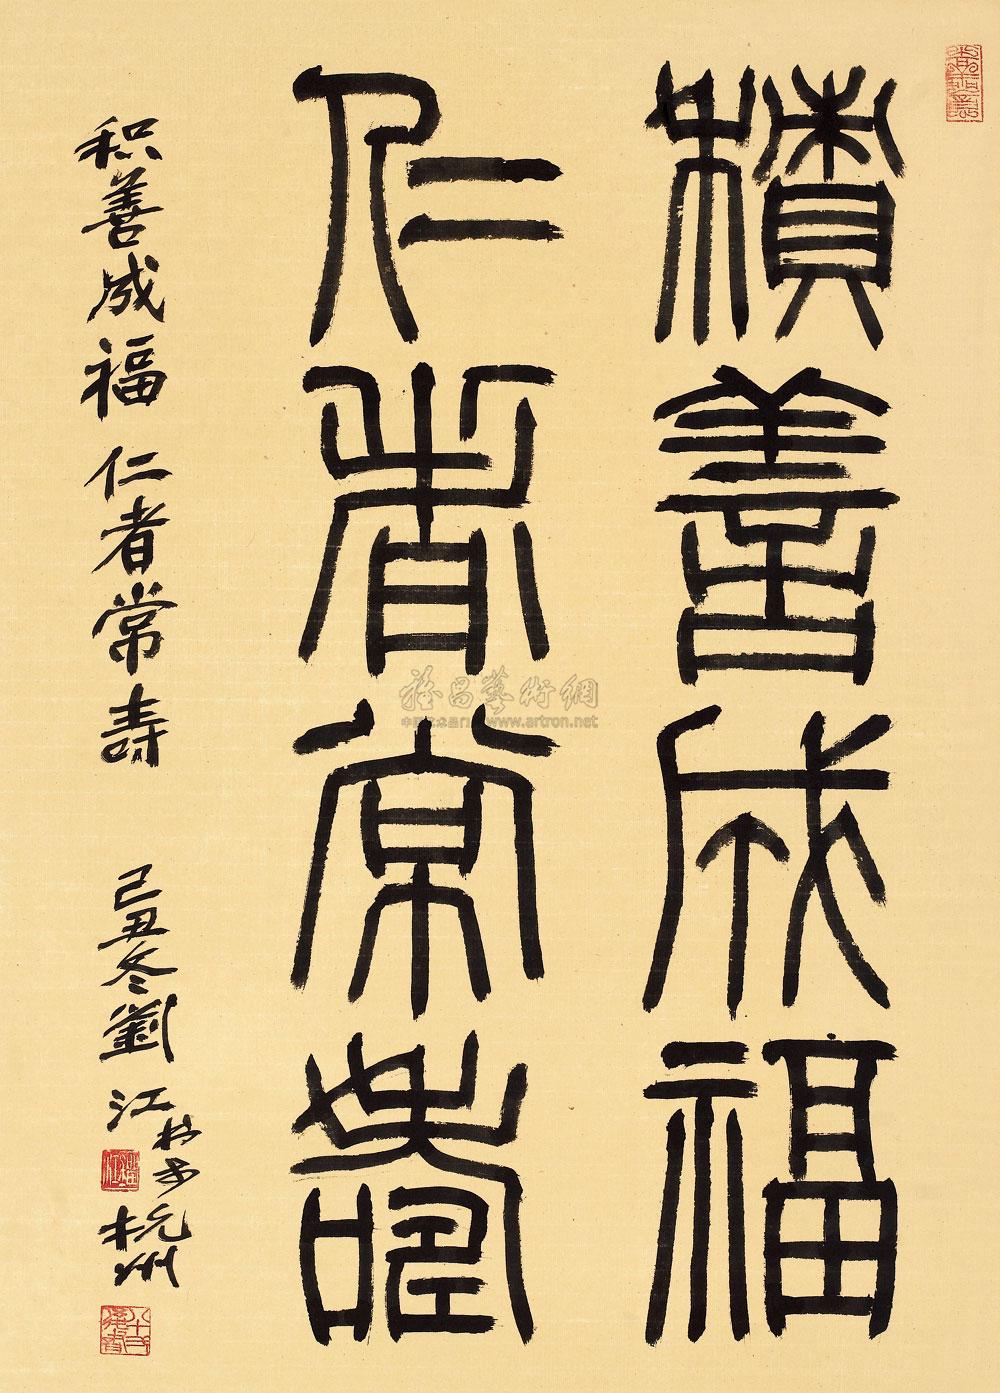 積善成福
仁者常壽
积善成福 仁者常寿
己丑冬劉江於
杭州
雅昌藝術網
www.artron.net